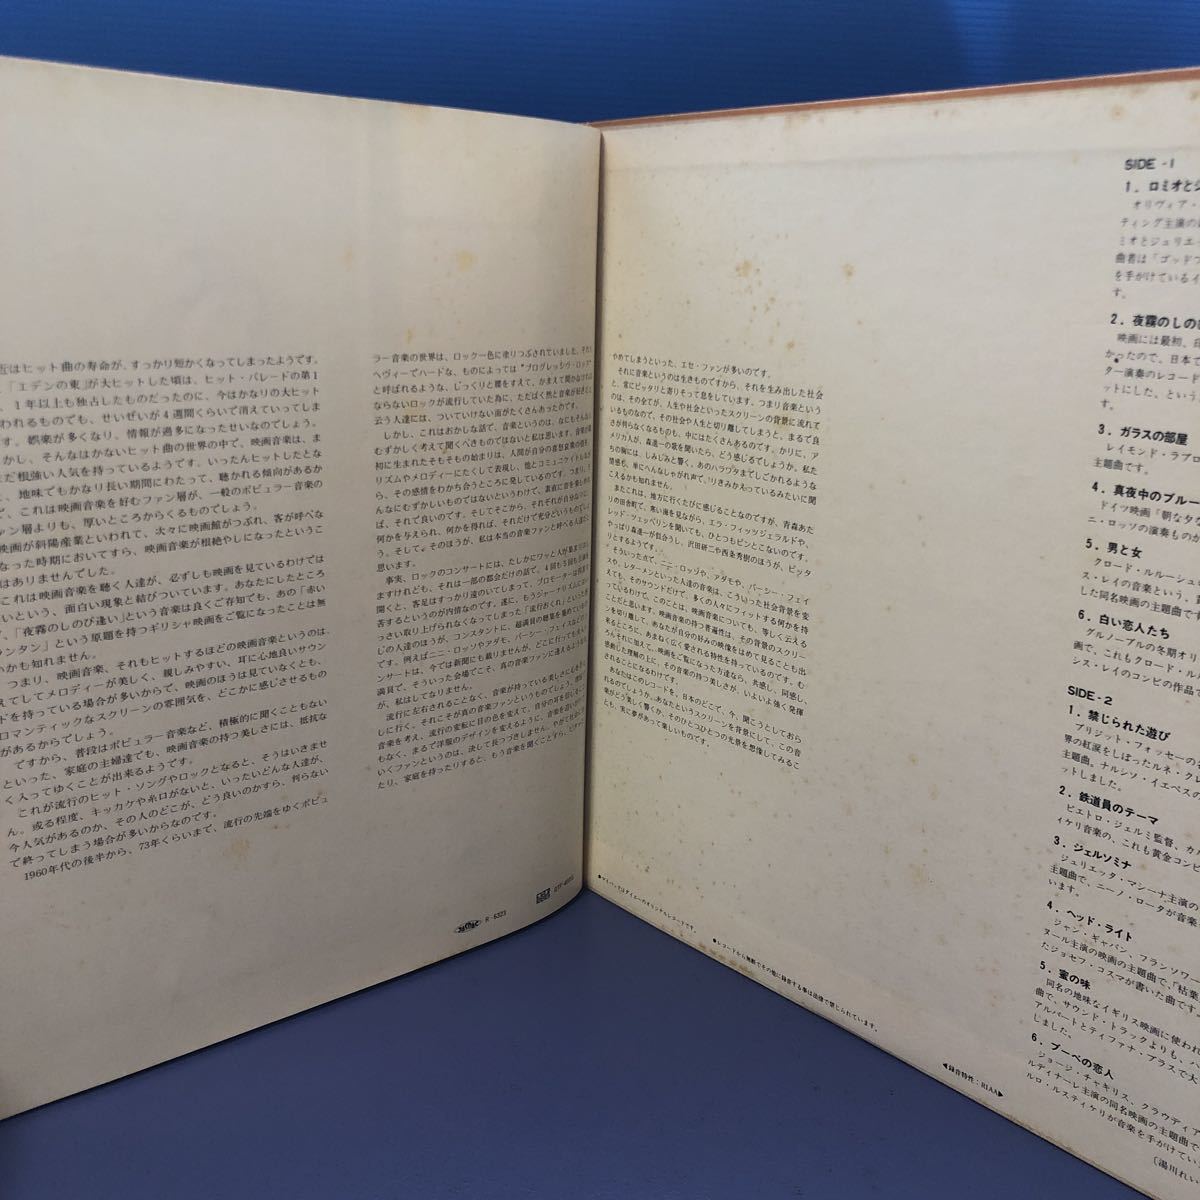 近はヒット曲の寿命が、すっかり短かくなってしまったようです。
「エデンの東」が大ヒットした頃は、ヒット・パレードの第1
1年以上も独占したものだったのに、今はかなりの大ヒット
われるものでも、せいぜいが4週間くらいで消えていってしま
す。娯楽が多くなり、情報が過多になったせいなのでしょう。
かし、そんなはかないヒット曲の世界の中で、映画音楽は、ま
だ根強い人気を持っているようです。いったんヒットしたとな
、地味でもかなり長い期間にわたって、聴かれる傾向があるか
、これは映画音楽を好むファン層が、一般のポピュラー音楽の
ァン層よりも、厚いところからくるものでしょう。
映画が斜陽産業といわれて、次々に映画館がつぶれ、客が呼べな
なった時期においてすら、映画音楽が根絶やしになったというこ
はありませんでした。
これは映画音楽を聴く人達が、必ずしも映画を見ているわけでは
いという、面白い現象と結びついています。あなたにしたところ
、「夜霧のしのび逢い」という音楽は良くご存知でも、あの「赤い
ランタン」という原題を持つギリシャ映画をご覧になったことは無
いかも知れません。
つまり、映画音楽、それもヒットするほどの映画音楽というのは、
えてしてメロディーが美しく、親しみやすい、耳に心地良いサウン
ドを持っている場合が多いからで、映画のほうは見ていなくとも、
ロマンティックなスクリーンの雰囲気を、どこかに感じさせるもの
があるからでしょう。
ですから、普段はポピュラー音楽など、積極的に聞くこともない
といった、家庭の主婦達でも、映画音楽の持つ美しさには、抵抗な
く入ってゆくことが出来るようです。
これが流行のヒット・ソングやロックとなると、そうはいきませ
ん。或る程度、キッカケや糸口がないと、いったいどんな人達が、
今人気があるのか、その人のどこが、どう良いのかすら、判らない
で終ってしまう場合が多いからなのです。
1960年代の後半から、73年くらいまで、流行の先端をゆくポピュ
ラー音楽の世界は、ロック一色に塗りつぶされていました。それも
ヘヴィーでハードな、ものによっては"プログレッシヴ・ロック"
と呼ばれるような、じっくりと腰をすえて、かまえて聞かなければ
ならないロックが流行していた為に、ただばく然と音楽が好きと
云う人達には、ついていけない面がたくさんあったのです。
しかし、これはおかしな話で、音楽というのは、なにもそんなに
むずかしく考えて聞くべきものではないと私は思います。音楽が最
初に生まれたそもそもの始まりは、人間が自分の喜怒哀楽の情を、
リズムやメロディーにたくして表現し、他とコミュニケイトしなが
ら、その感情をわかち合うところに発しているのです。つまり、そ
んなにむずかしいものではないというわけで、素直に音を楽しめれ
ば、それで良いのです。そしてそこから、それぞれが自分なりに、
何かを与えられ、何かを得れば、それだけで充分というものでしょ
う。そして、そのほうが、私は本当の音楽ファンと呼べる人達だと
思います。
事実、ロックのコンサートには、たしかにワッと人が集まりはし
ますけれども、それは一部の都会だけの話で、4回も5回も日本で
開くと、客足はすっかり遠のいてしまって、プロモーターは四苦八
苦するというのが内情なのです。逆に、もうジャーナリズムにはす
っさい取り上げられなくなってしまった「流行おくれ」といった感
じの人達のほうが、コンスタントに、超満員の聴衆を集めているの
です。例えばニニ・ロッソやアダモ、パーシー・フェイスなどのコ
ンサートは、今では新聞にも載りませんが、どこに行っても大入り
満員で、そういった会場でこそ、真の音楽ファンに逢えるような気
が、私はしてなりません。
流行に左右されることなく、音楽が持っている美しさに心を楽
しに行く。それこそが真の音楽ファンというものでしょう。情報で
音楽を考え、流行の変転に目の色を変えて、自分の耳を信じること
もなく、まるで洋服のデザインを変えるように、音楽を追いかけて
いくファンというのは、決して長つづきしません。やがて社会に出
たり、家庭を持ったりすると、もう音楽を聞くことすら、ピタッと
R-6323
やめてしまうといった、エセ・ファンが多いのです。
それに音楽というのは生きものですから、それを生み出した社会
と、常にピッタリと寄りそって息をしています。つまり音楽という
のは、その全てが、人生や社会といったスクリーンの背景に流れて
いるものなので、その社会や人生と切り離してしまうと、まるで良
さが判らなくなるものも、中にはたくさんあるのです。かりに、ア
メリカ人が、森進一の歌を聞いたら、どう感じるでしょうか。私た
ちの胸には、しみじみと響く、あのハラワタまでしごかれるような
情感も、単にへんなしゃがれ声で、りきみかえっているみたいに聞
こえるかも知れません。
またこれは、地方に行くたびに感じることなのですが、青森あた
りの田舎町で、寒い海を見ながら、エラ・フィッツジェラルドや、
レッド・ツェッペリンを聞いても、ひとつもピンとこないのです。
やっぱり森進一が似合うし、沢田研二や西条秀樹のほうが、ピッタ
リとするようです。
そういった点で、ニニ・ロッソや、アダモや、パーシー・フェイ
スや、レターメンといった人達の音楽は、こういった社会背景を変
えても、そのサウンドだけで、多くの人々にフィットする何かを持
っているわけで、このことは、映画音楽についても、等しく云える
ことだと思います。映画音楽の持つ普遍性は、その背景のスクリー
ンを切り離して、あなたが自分の好みの映像をはめて見ることも出
来るところに、あまねく広く愛される特性を持っているのです。む
ろんそれに加えて、映画をご覧になった方達なら、共感し、同感し、
感動した理解の上に、その音楽の持つ美しさが、いよいよ強く発揮
されることになるわけです。
あなたはこのレコードを、日本のどこで、今、聞こうとしておら
れるのでしょうか。あなたというスクリーンを背景にして、この音
楽がどう美しく響くか、そのひとつひとつの光景を想像してみるこ
とも、実に夢があって楽しいものです。
●マイパックはダイエーのオリジナルレコードです。
●レコードから無断でその他に録音する事は法律で禁じられています。
◀録音特性：RIAA▶
SIDE-1
1. ロミオとジ
オリヴィア・
ティング主演の
ミオとジュリエ
曲者は「ゴッドフ
を手がけているイ
す。
2. 夜霧のしのび
映画には最初、
かったので、日本で
ター演奏のレコード
ットにした、という
す。
3. ガラスの部屋
レイモンド・ラブロ
主題曲です。
4. 真夜中のブルー
ドイツ映画「朝な夕
ニ・ロッソの演奏もの
5. 男と女
クロード・ルルーシュ
ス・レイの音楽という、
した同名映画の主題曲です
6. 白い恋人たち
グルノーブルの冬期オリ
画で、これもクロード・ル
シス・レイのコンビの作品
SIDE-2
1. 禁じられた遊び
ブリジット・フォッセーの
界の紅涙をしぼったルネ・クレ
主題曲。ナルシソ・イエペスの
ットしました。
2. 鉄道員のテーマ
ピエトロ・ジェルミ監督、カル
イケリ音楽の、これも黄金コンビ
3. ジェルソミナ
ジュリエッタ・マシーナ主演の
主題曲で、ニーノ・ロータが音楽
います。
4. ヘッド・ライト
ジャン・ギャバン、フランソワー
ヌール主演の映画の主題曲で、「枯葉
たジョセフ・コスマが書いた曲です
5. 蜜の味
同名の地味なイギリス映画に使われ
曲で、サウンド・トラックよりも、ハ
アルパートとティファナ・ブラスで大
じました。
6. ブーベの恋人
ジョージ・チャキリス、クラウディア
ルディナーレ主演の同名映画の主題曲で
ルロ・ルスティケリが音楽を手がけてい
（湯川れい